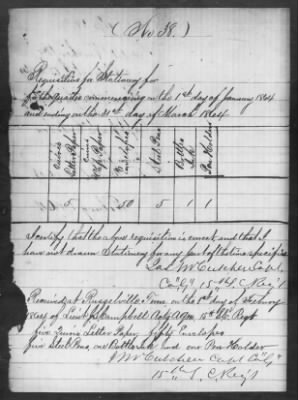 (No 38.)
Requisition for Stationery for
the Quarter commencing on the 1st day of January 1864
and ending on the 31st day of March 1864
Quires Letter Paper
Quires Wrap. Paper
Envelopes
Steel Pens
Bottles Ink
Pen Holder
5 50 5 1 1
I certify that the above requisition is correct and that I
have not drawn Stationery for any part of the time specified
Jas McCutchen Capt
Co "G" 15th S. C. Reg't
Received at Russelville Tenn on the 1st day of February
1864 of Lieut Campbell 15th Regt
five Quires Letter Paper, fifty Envelopes
five Steel Pens, one Bottle ink and one Pen Holder
McCutchen Capt Co "G"
15th S. C. Reg't